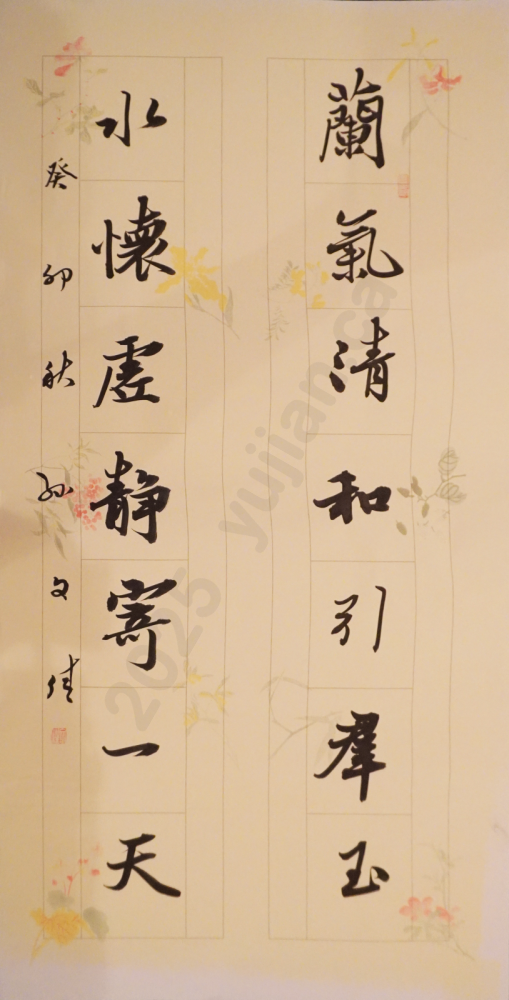 蘭氣清和引羣玉
水懷虛靜寄一天
癸卯秋孫文倩
2025 yujian.ca